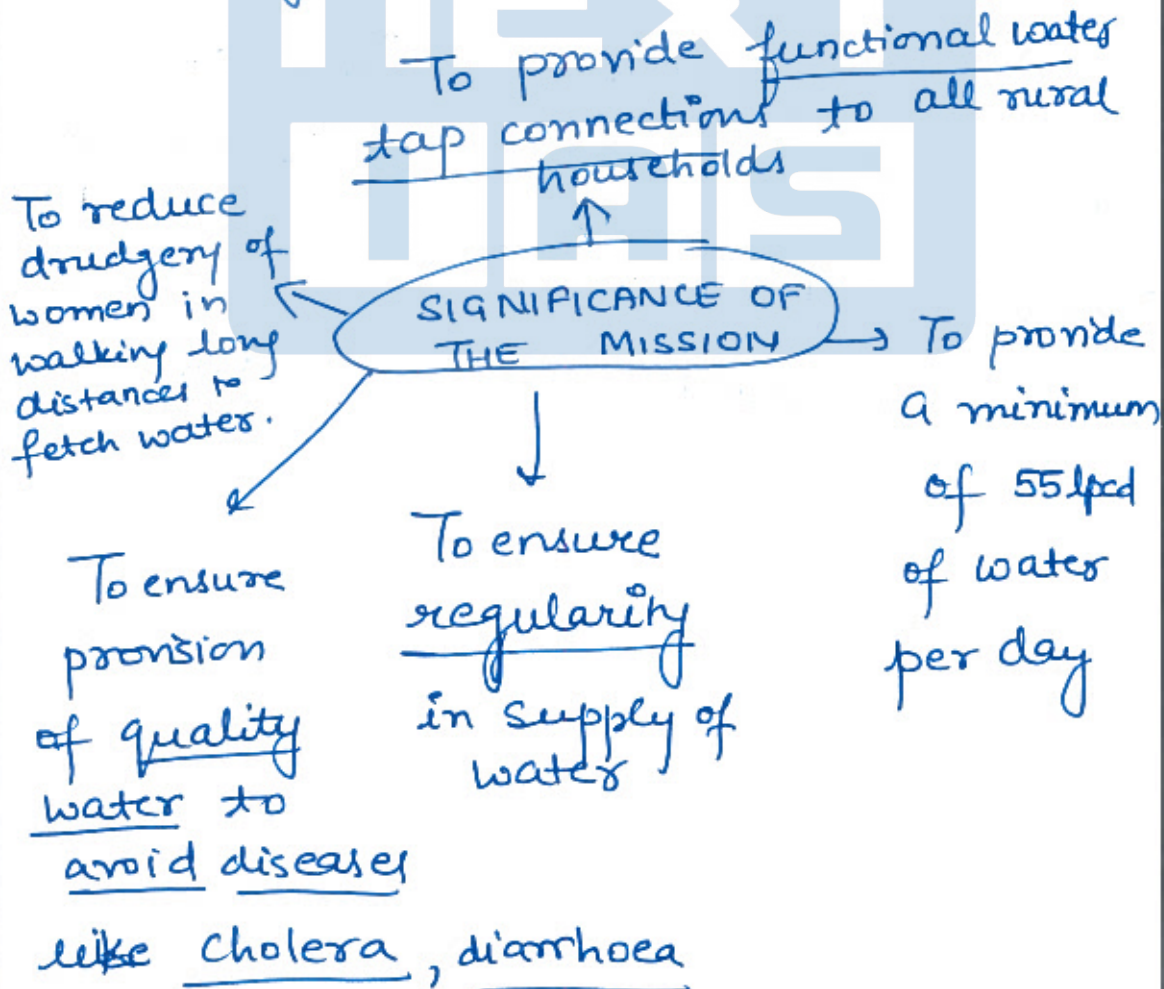 NEXT
IAS
To provide functional water
tap connections to all rural
households
To reduce
drudgery of
women in
walking long
distances to
fetch water.
SIGNIFICANCE OF
THE MISSION
To provide
a minimum
of 55 lpcd
of water
per day
To ensure
provision
of quality
water to
avoid diseases
like cholera, diarrhoea
To ensure
regularity
in supply of
water